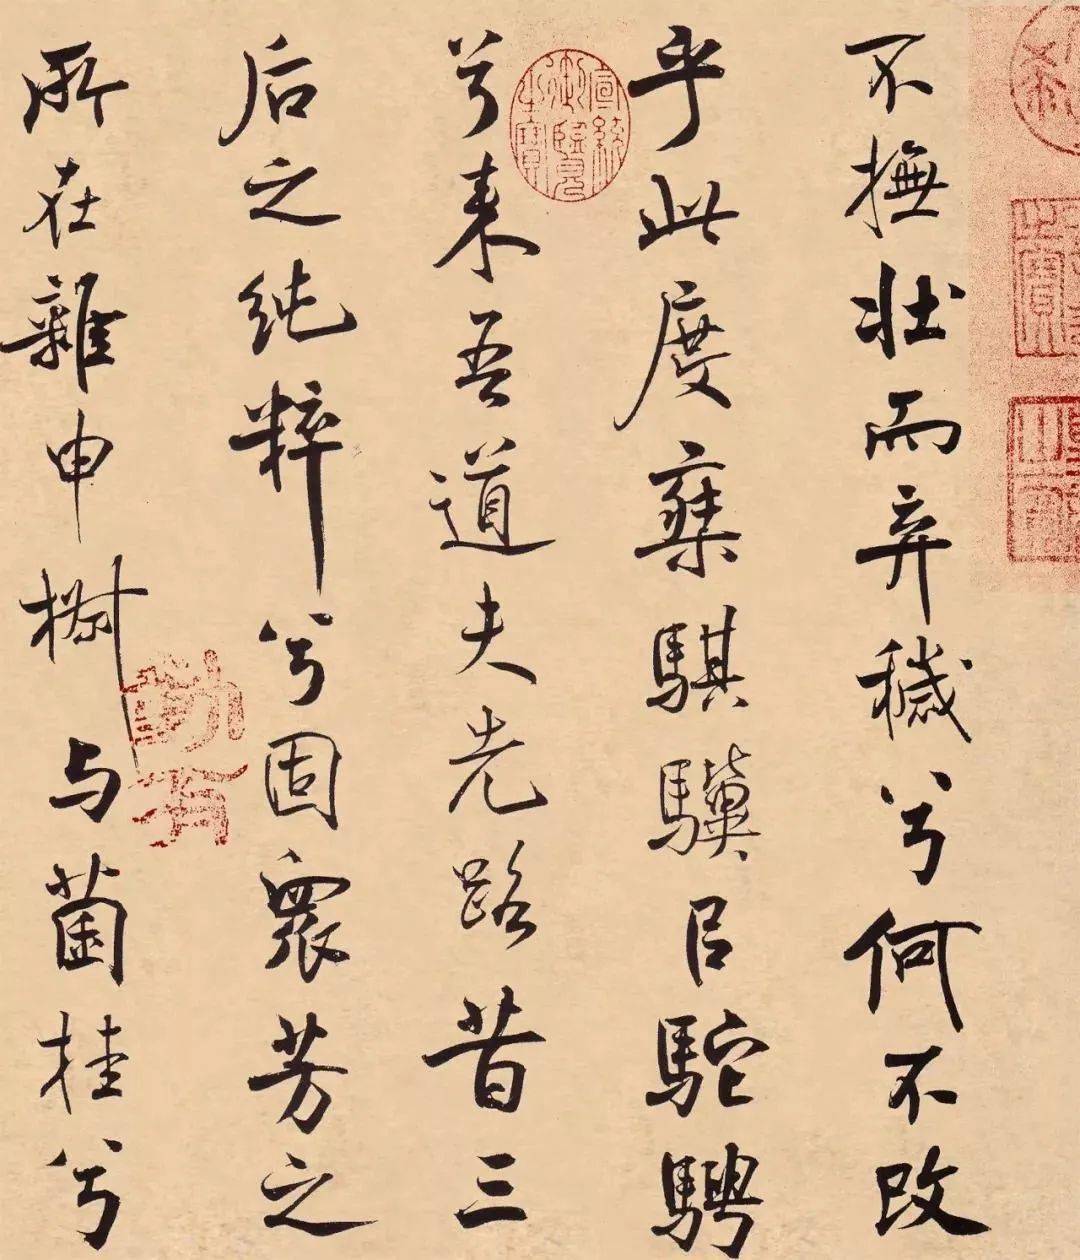 不撫壯而弃穢兮何不改
乎此度椉騏驥㠯駝騁
兮来吾道夫先路昔三
后之純粹兮固衆芳之
所在雜申椒与菌桂兮
宣統御覽之寶